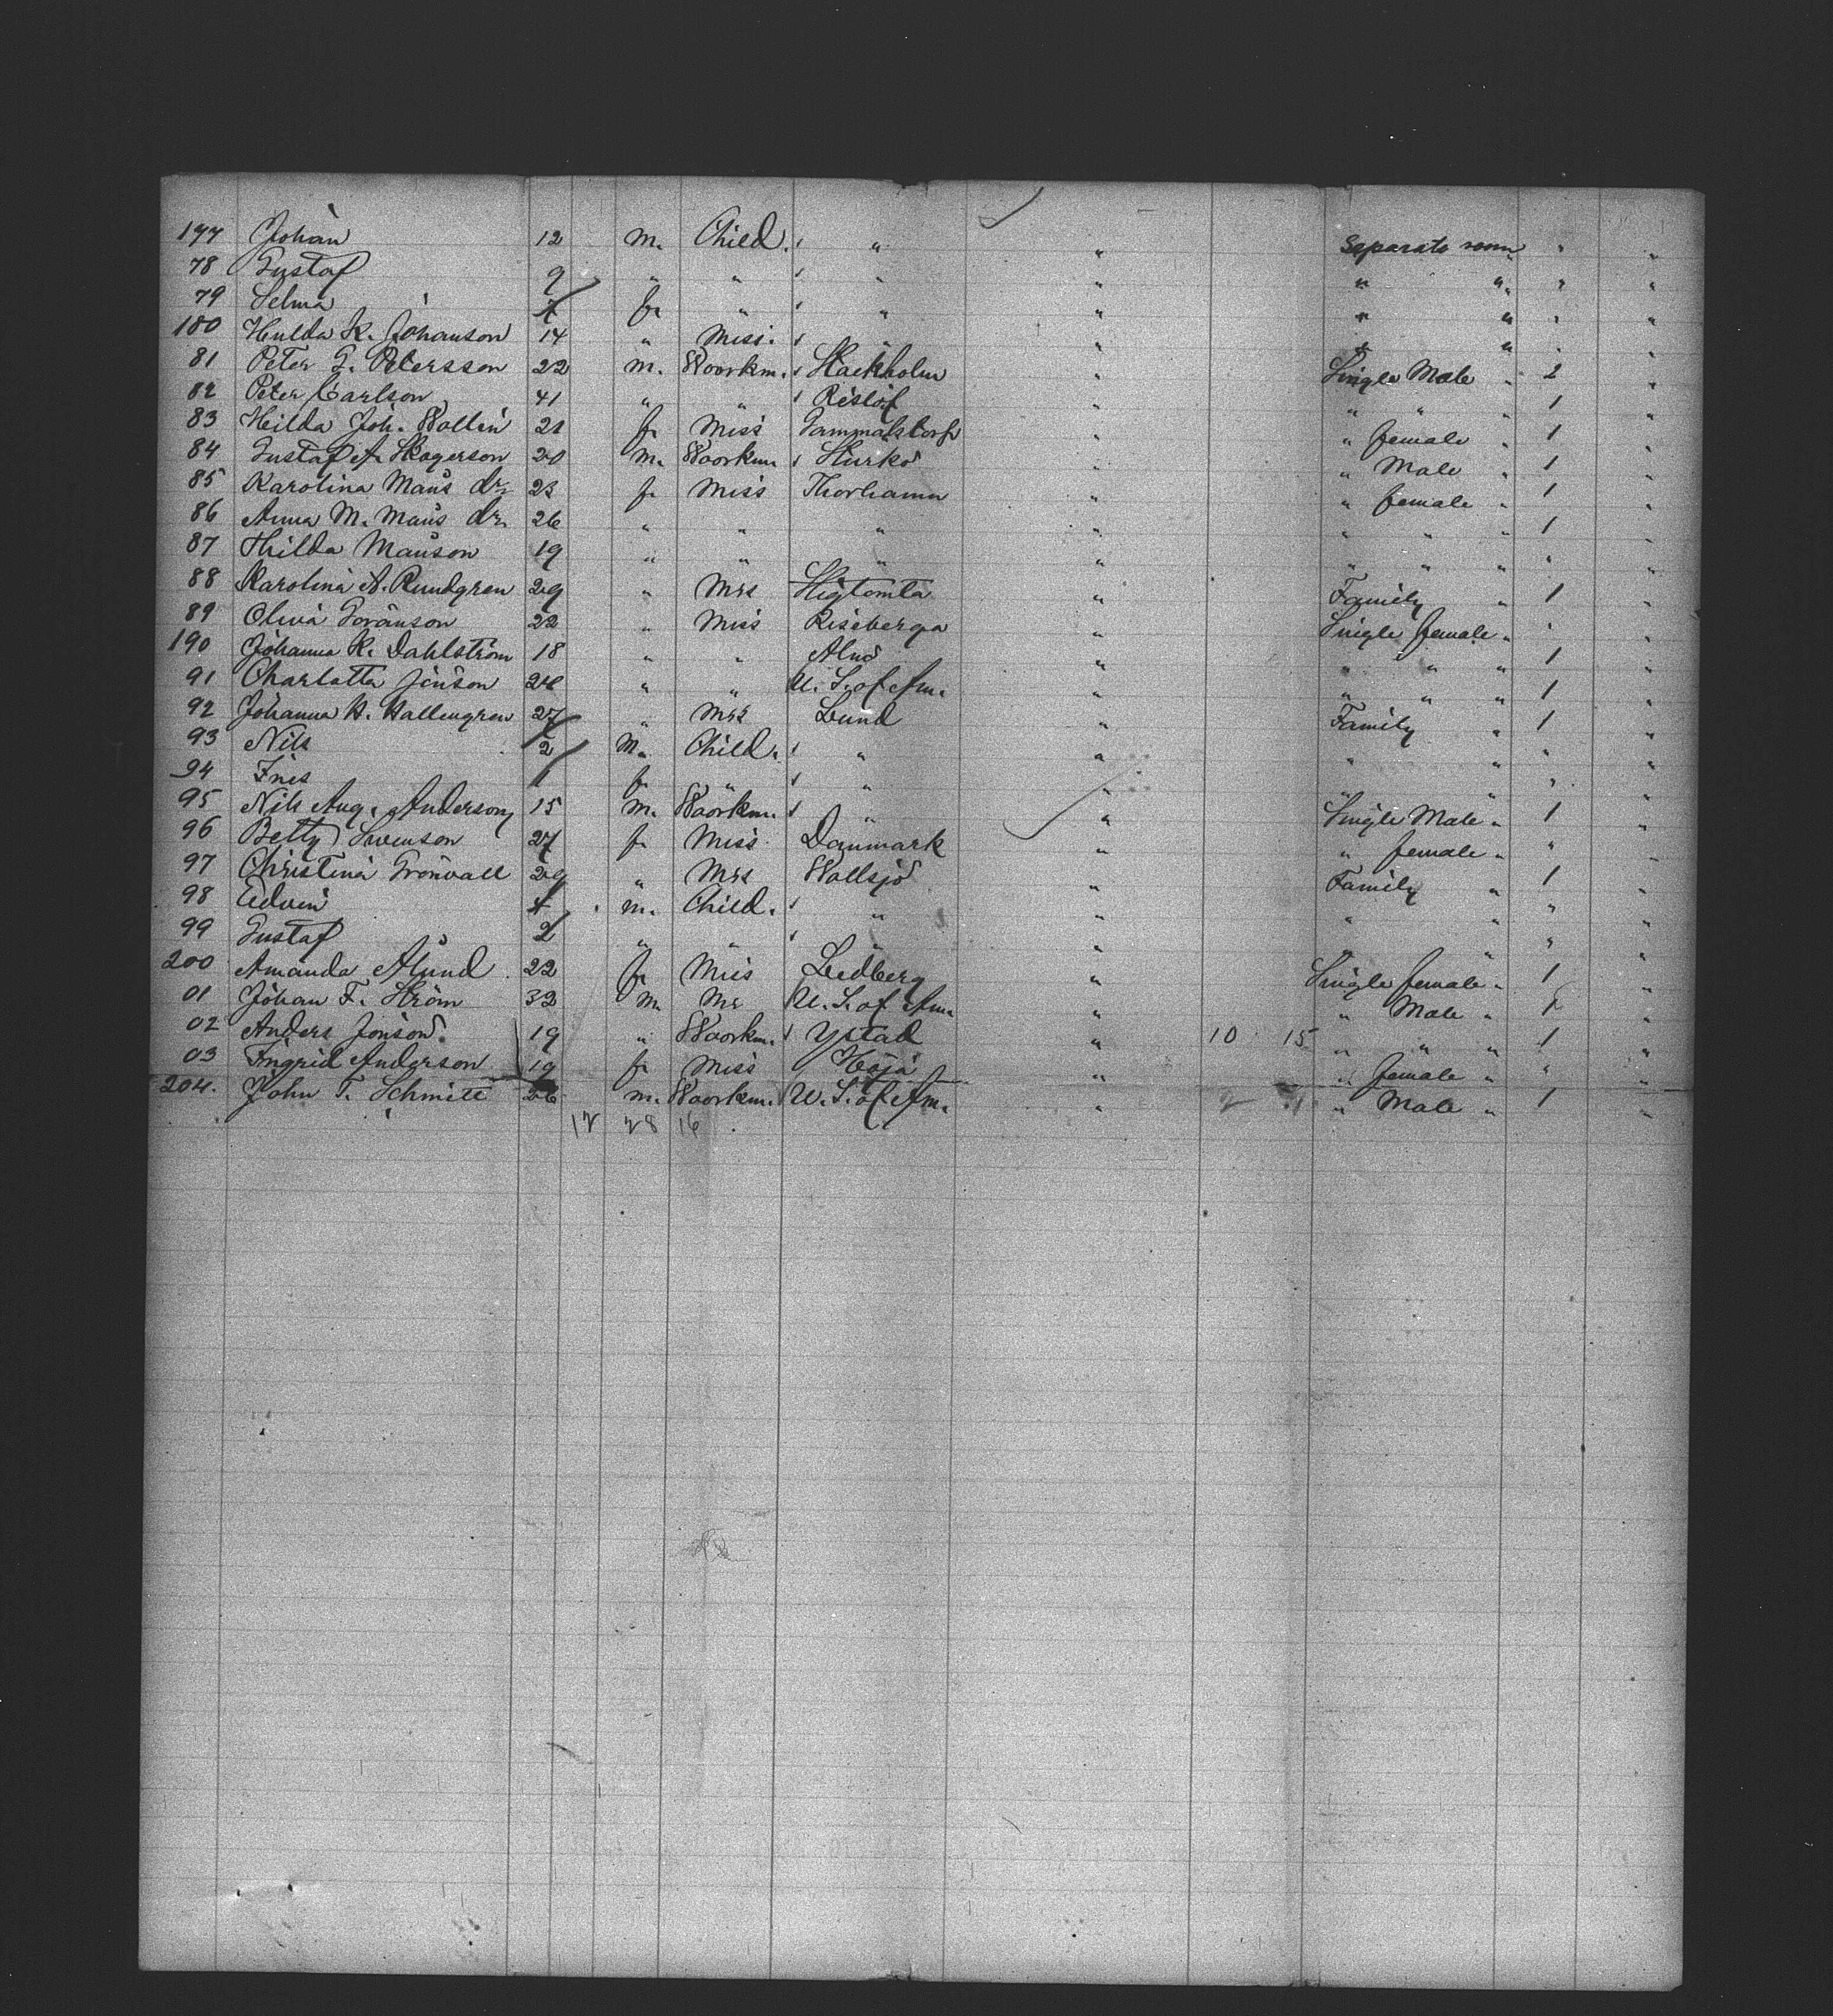 177 Johan 12 m. Child. " " Separate room " "
78 Gustaf 9 " " " " " " " "
79 Selma f. " " " " " " "
180 Hulda K. Johanson 14 " Miss. " " " " " "
81 Peter G. Petersson 22 m. Woorkm. Stackholm " Single Male " 2 "
82 Peter Carlson 41 " " Rislöf " " " " 1 "
83 Hilda Joh. Wallin 21 f. Miss Gammalstorp " " female " 1 "
84 Gustaf A. Hagerson 20 m. Woorkm. Sturkö " " Male " 1 "
85 Karolina Måns dr. 23 f. Miss Thorhamn " " female " 1 "
86 Anna M. Måns dr. 26 " " " " " " " 1 "
87 Thilda Månson 19 " " " " " " " " "
88 Karolina A. Rundgren 29 " Mrs Higtomta " Family " 1 "
89 Olivia Göranson 22 " Miss Riseberga " Single female " " "
190 Johanna K. Dahlström 18 " " Alnö " " " " 1 "
91 Charlotta Jönson " " U. S. of Am. " " " " 1 "
92 Johanna H. Hallengren 27 " Mrs Lund " Family " 1 "
93 Nils 2 m. Child. " " " " " "
94 Ines 1 f. " " " " " " "
95 Nils Aug. Anderson 15 m. Woorkm. " " Single Male " 1 "
96 Betty Swenson 27 f. Miss Danmark " " female " " "
97 Christina Grönvall 29 " Mrs Wallsjö " Family " 1 "
98 Edvin 4 m. Child. " " " " " "
99 Gustaf 2 " " " " " " "
200 Amanda Ålund 22 f. Miss Ledberg " Single female " 1 "
01 Johan F. Ström 32 m. Mr U. S. of Am. " " Male " 1 "
02 Anders Jönson 19 " Woorkm. Ystad " 10 15 " " " 1 "
03 Ingrid Anderson 19 f. Miss Höja " " female " " "
204. John T. Schmitt 26 m. Woorkm. U. S. of Am. " 2 1 " Male " 1 "
12 28 16